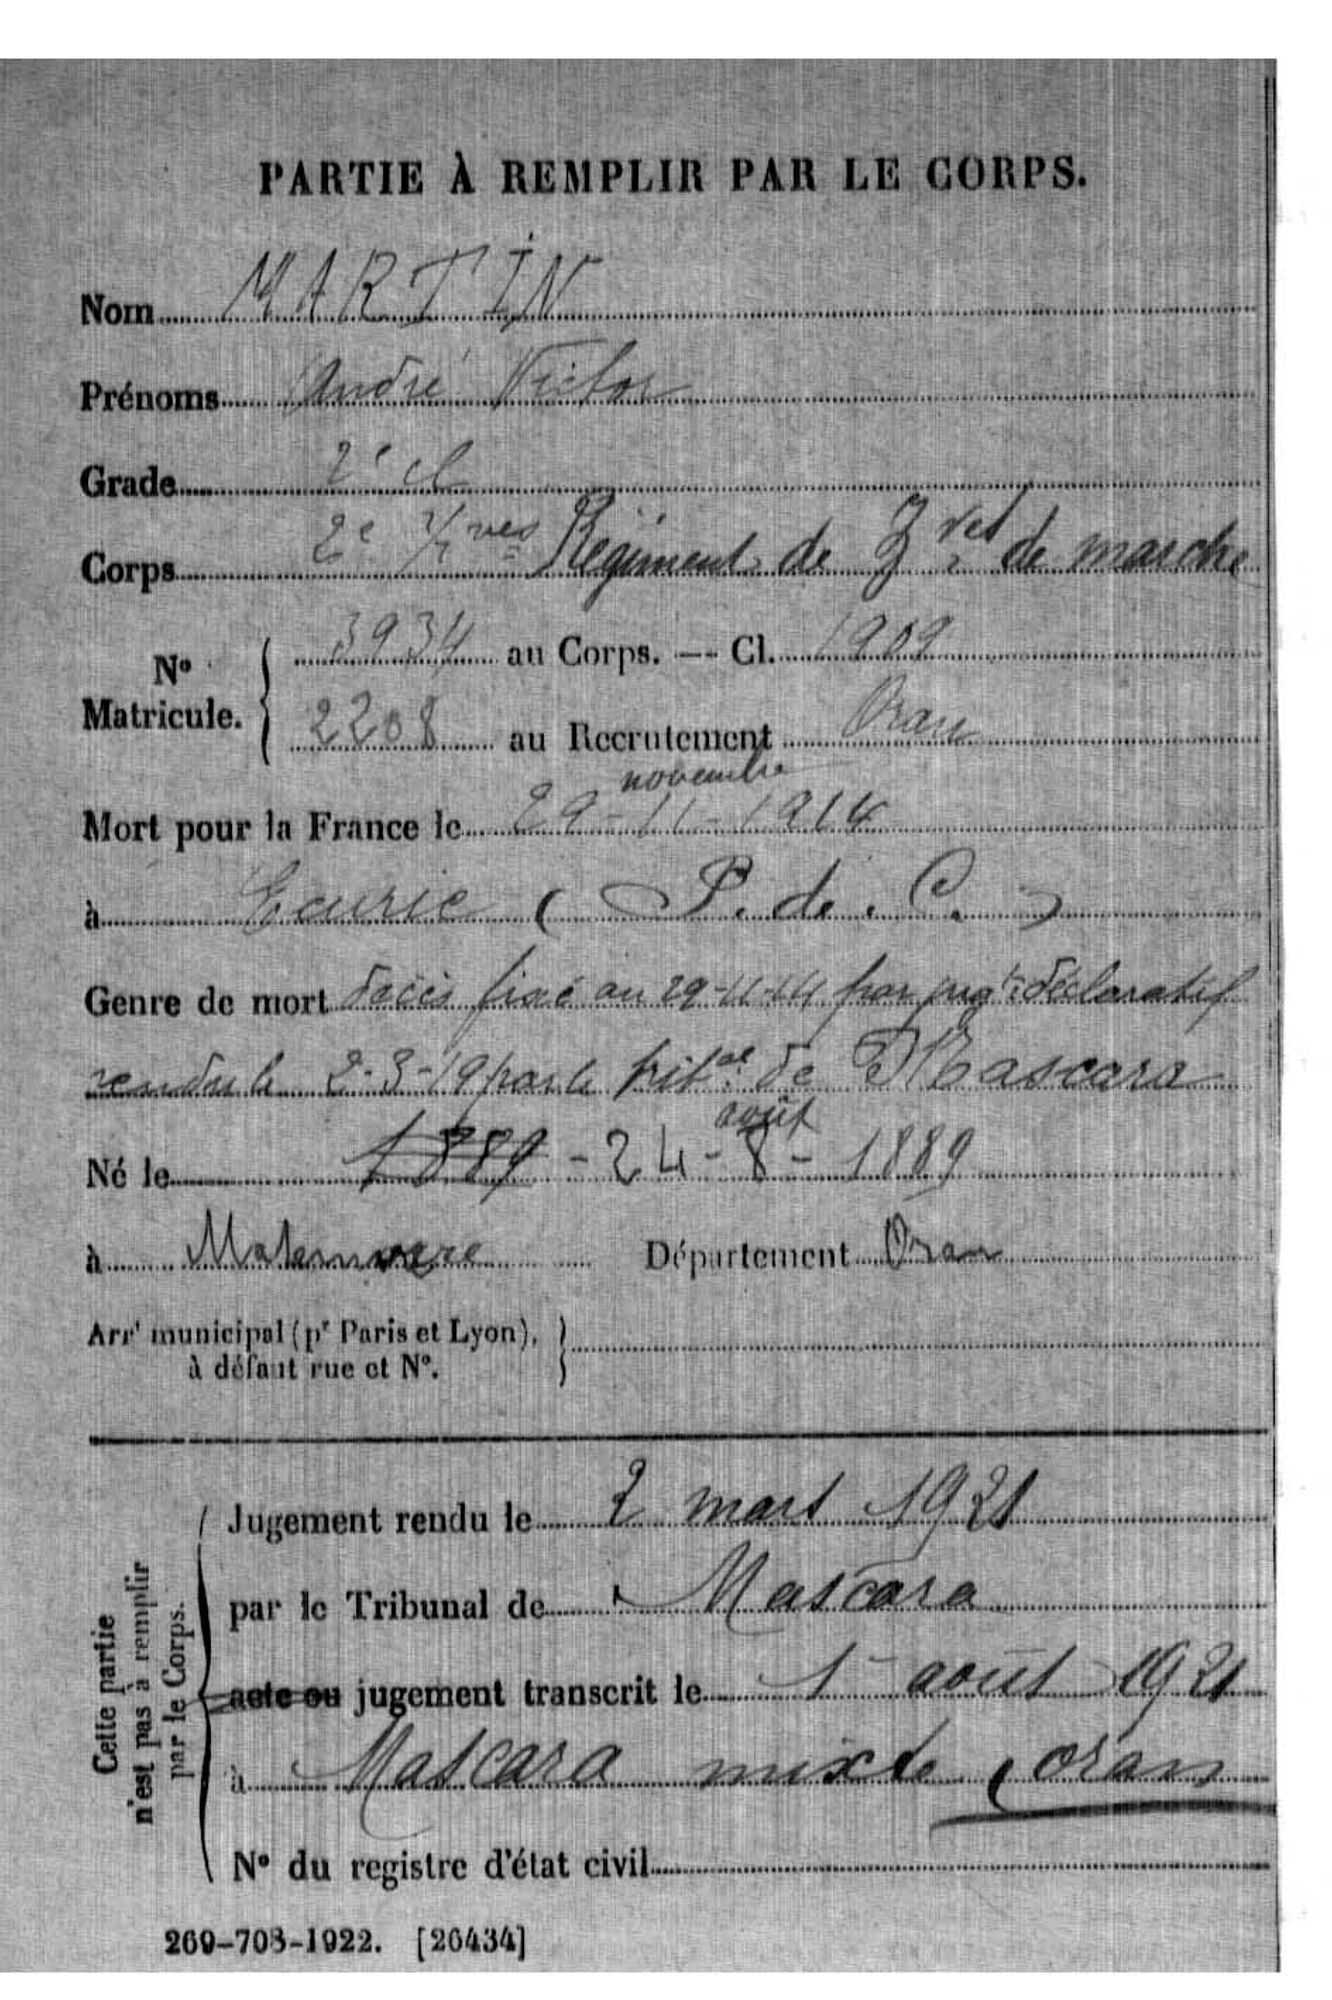 PARTIE À REMPLIR PAR LE CORPS.
Nom MARTIN
Prénoms André Victor
Grade 2e cl
Corps 2e Zves Régiment de Zves de marche
No Matricule. 3934 au Corps. — Cl. 1909
2208 au Recrutement Oran
novembre
Mort pour la France le 29-11-1914
à Ecurie (P. de. C.)
Genre de mort décès fixé au 29-11-14 par jugt déclaratif
rendu le 2-3-19 par le tribal de Mascara
août
Né le 1889 - 24-8-1889
à Département Oran
Arrt municipal (pr Paris et Lyon),
à défaut rue et No.
Cette partie
n'est pas à remplir
par le Corps.
Jugement rendu le 2 mars 1921
par le Tribunal de Mascara
acte ou jugement transcrit le 1 août 1921
à Mascara mixte (oran
No du registre d'état civil
269-708-1922. [26434]